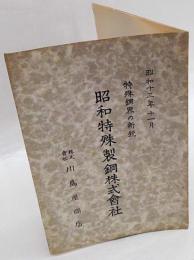 昭和十二年十一月
特殊鋼界の新鋭
昭和特殊製鋼株式會社
株式會社 川島屋商店